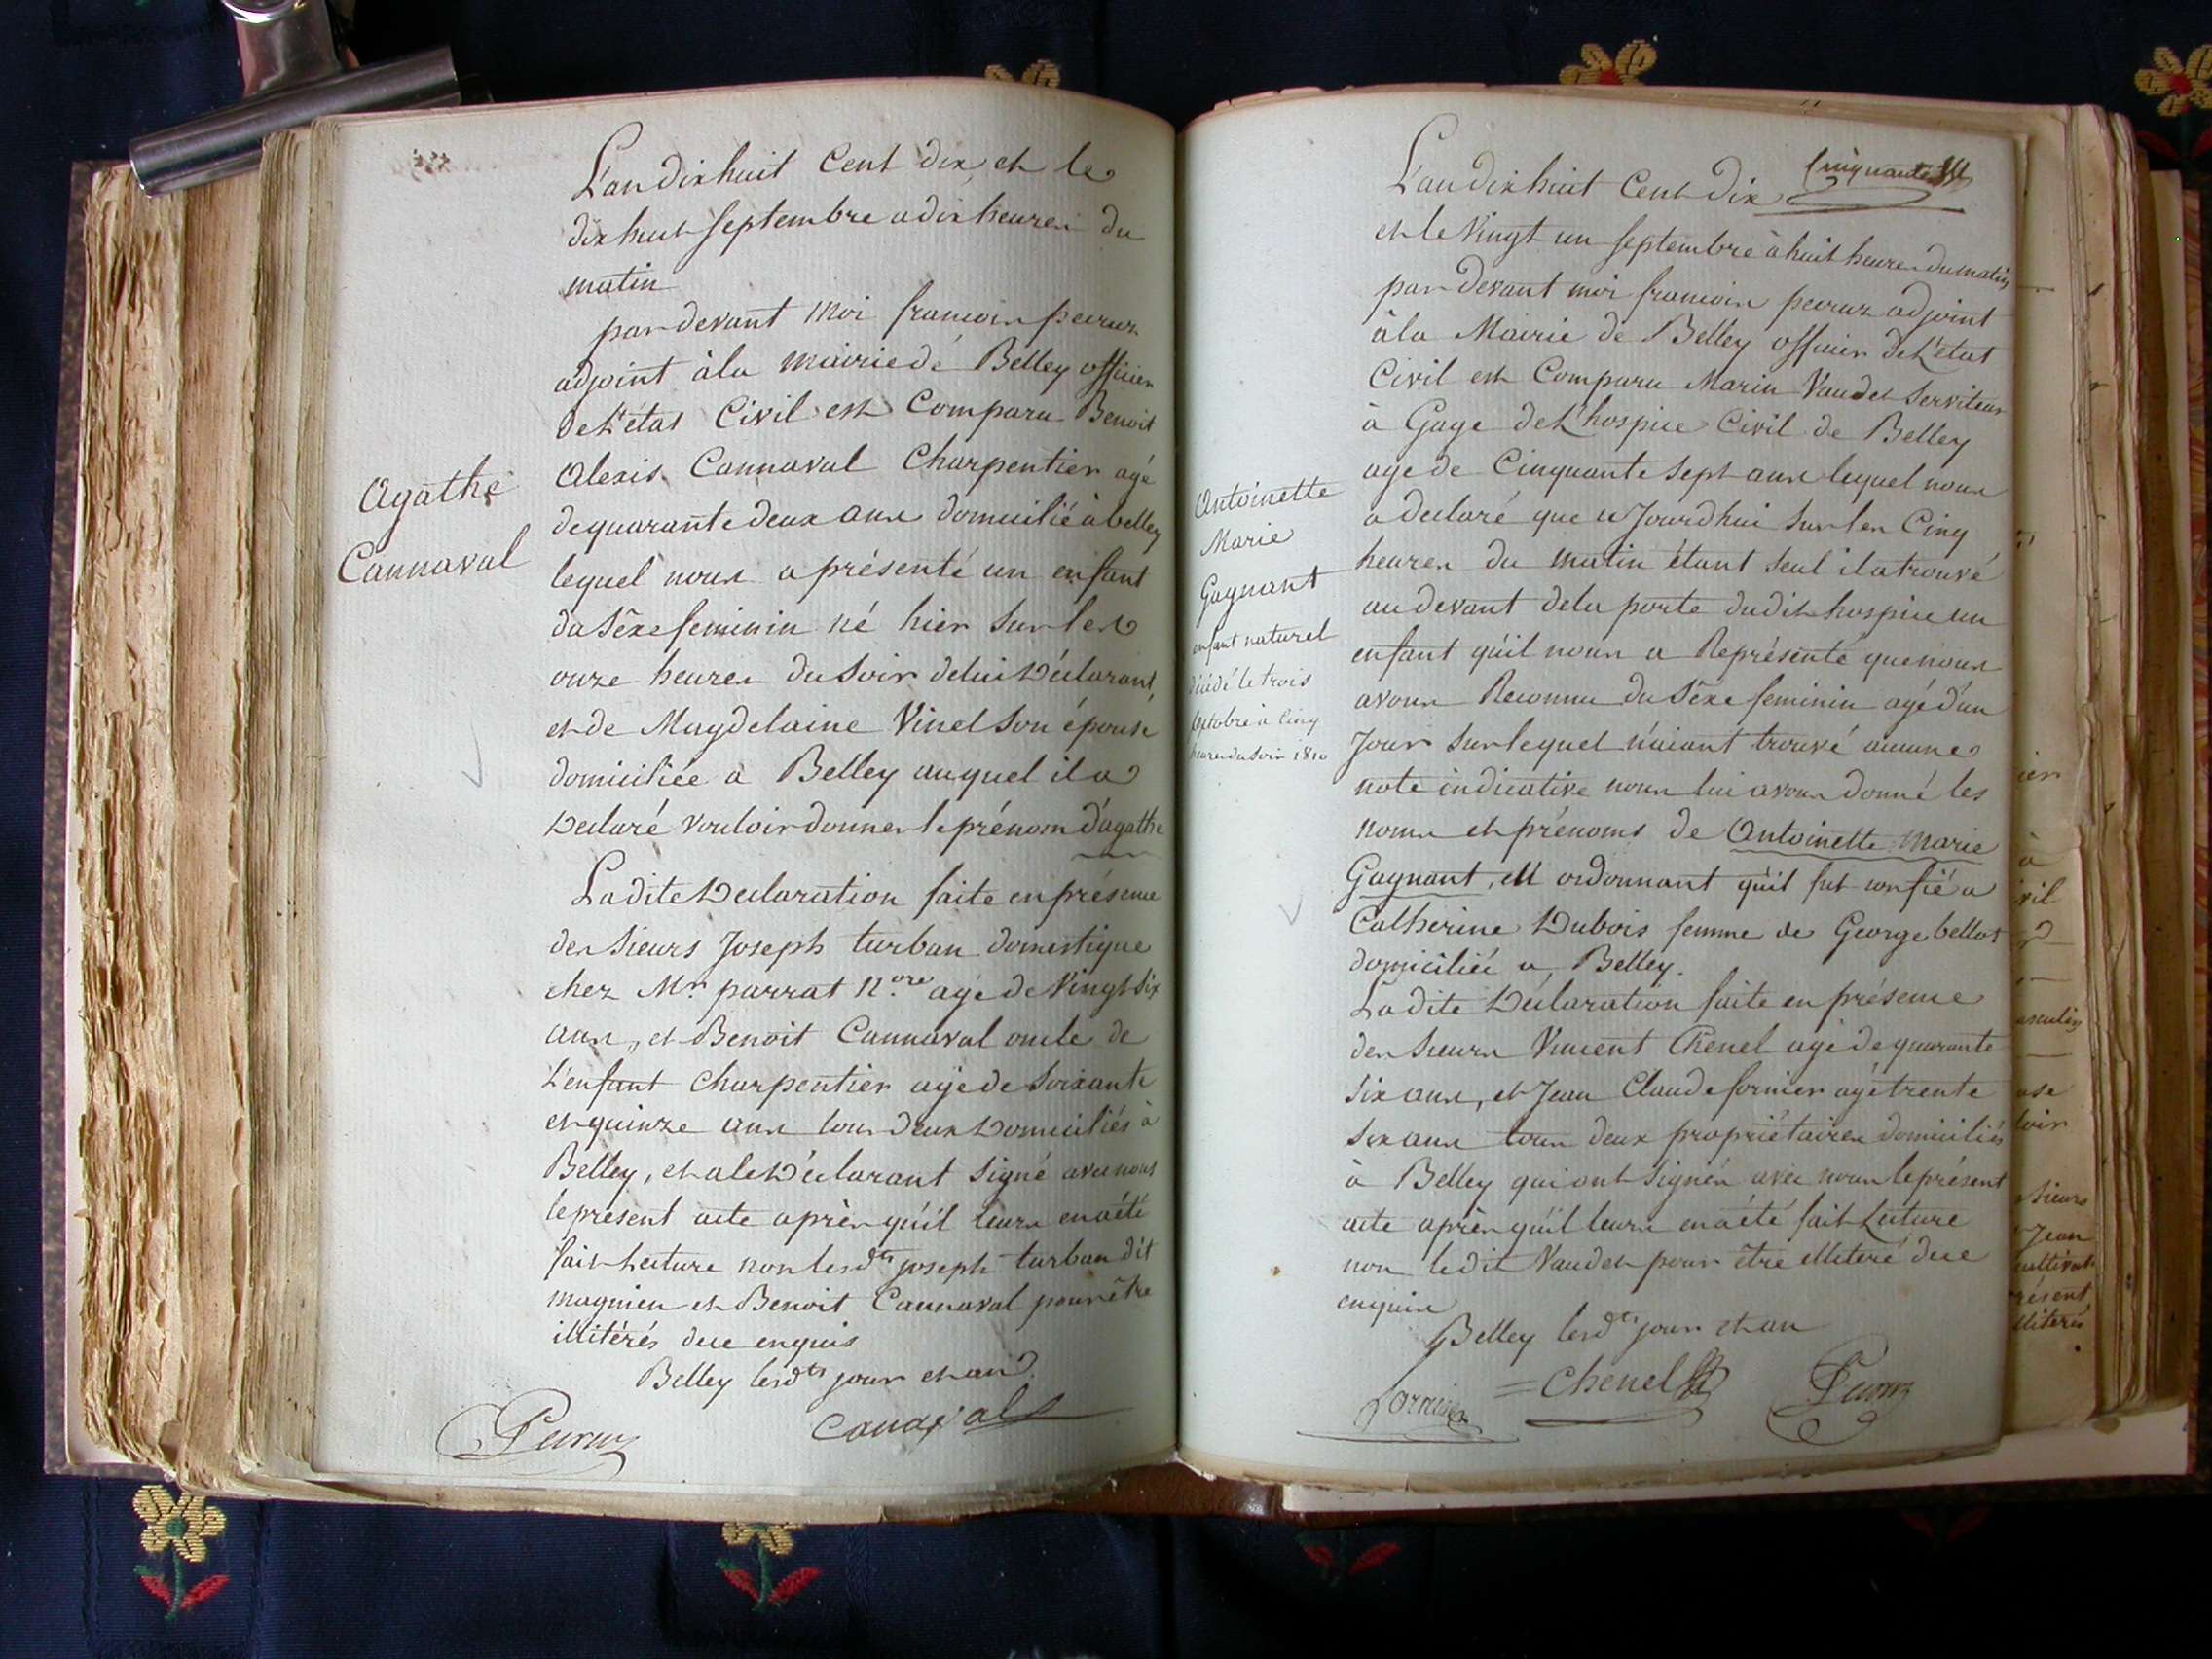 L'an dix huit Cent dix et le
dix huit septembre a dix heures du
matin
par devant Moi francois pevruz
adjoint à la Mairie de Belley officier
de L'état Civil est Comparu Benoit
Agathe
Cannaval
Alexis Cannaval Charpentier agé
de quarante deux ans domicilié à belley
lequel nous a présenté un enfant
du Sêxe feminin né hier sur les
onze heures du Soir de lui Déclarant
et de Magdelaine Vinel Son épouse
domiciliée a Belley auquel il a
Declaré vouloir donner le prénom d'agathe
La dite Declaration faite en présence
des Sieurs Joseph turban domestique
chez Mr. parrat N.ore agé de Vingt Six
ans, et Benoit Cannaval oncle de
L'enfant Charpentier agé de Soixante
et quinze ans tous deux Domiciliés à
Belley, et a le Déclarant Signé avec nous
le présent acte après qu'il leurs en a été
fait Lecture non lesdts joseph turban dit
magnien et Benoit Cannaval pour être
illitérés de ce enquis
Belley lesdts jour et an
Cannaval
L'an dix huit Cent Dix
Cinquante
et le Vingt un septembre à huit heures du matin
par Devant moi francois pevruz adjoint
à la Mairie de Belley officier de L'état
Civil est Comparu Marin Vaudet Serviteur
à Gage de L'hospice Civil de Belley
agé de Cinquante Sept ans lequel nous
a declaré que ce Jourdhui Sur les Cinq
heures du matin étant Seul il a trouvé
au devant de la porte dudit hospice un
enfant qu'il nous a Représenté que nous
avons Reconnu du Sêxe feminin agé d'un
Jour Sur lequel n'aiant trouvé aucune
note indicative nous lui avons donné les
noms et prénoms de Antoinette Marie
Gagnant, en ordonnant qu'il fut confié a
Catherine Dubois femme de George bellot
domiciliée a Belley.
La dite Déclaration faite en présence
des Sieurs Vincent Chenel agé de quarante
Six ans, et Jean Claude fornier agé trente
Six ans tous deux propriétaires domiciliés
à Belley qui ont Signés avec nous le présent
acte après qu'il leurs en a été fait Lecture
non ledit Vaudet pour être illiteré de ce
enquis
Belley lesdts jour et an
Chenel
Antoinette
Marie
Gagnant
enfant naturel
décédé le trois
Octobre à Cinq
heures du Soir 1810